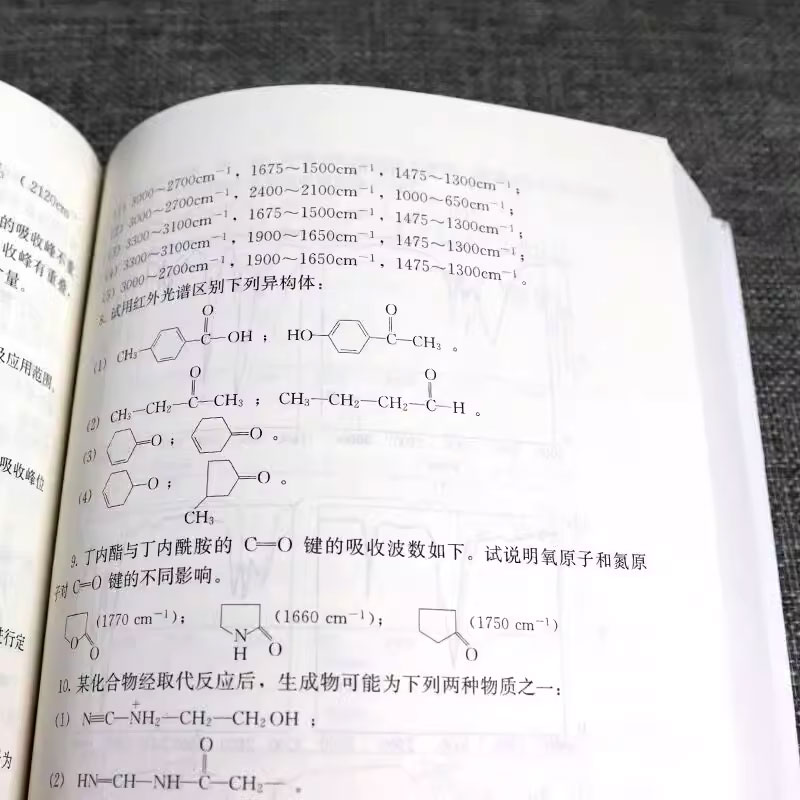 （2120cm
的吸收峰不重
收峰有重叠，
量。
及应用范围。
吸收峰位
进行定
为
(1) 3000～2700cm⁻¹，1675～1500cm⁻¹，1475～1300cm⁻¹；
(2) 3000～2700cm⁻¹，2400～2100cm⁻¹，1000～650cm⁻¹；
(3) 3300～3100cm⁻¹，1675～1500cm⁻¹，1475～1300cm⁻¹；
(4) 3300～3100cm⁻¹，1900～1650cm⁻¹，1475～1300cm⁻¹；
(5) 3000～2700cm⁻¹，1900～1650cm⁻¹，1475～1300cm⁻¹。
8. 试用红外光谱区别下列异构体：
O O
(1) CH₃ C—OH； HO C—CH₃。
O O
(2) CH₃—CH₂—C—CH₃； CH₃—CH₂—CH₂—C—H。
(3) =O； =O。
(4) —O； =O。
CH₃
9. 丁内酯与丁内酰胺的 C=O 键的吸收波数如下。试说明氧原子和氮原
子对 C=O 键的不同影响。
O O (1770 cm⁻¹)； N H O (1660 cm⁻¹)； O (1750 cm⁻¹)
10. 某化合物经取代反应后，生成物可能为下列两种物质之一：
(1) N≡C—N⁺H₂—CH₂—CH₂OH；
O
(2) HN=CH—NH—C—CH₂—。